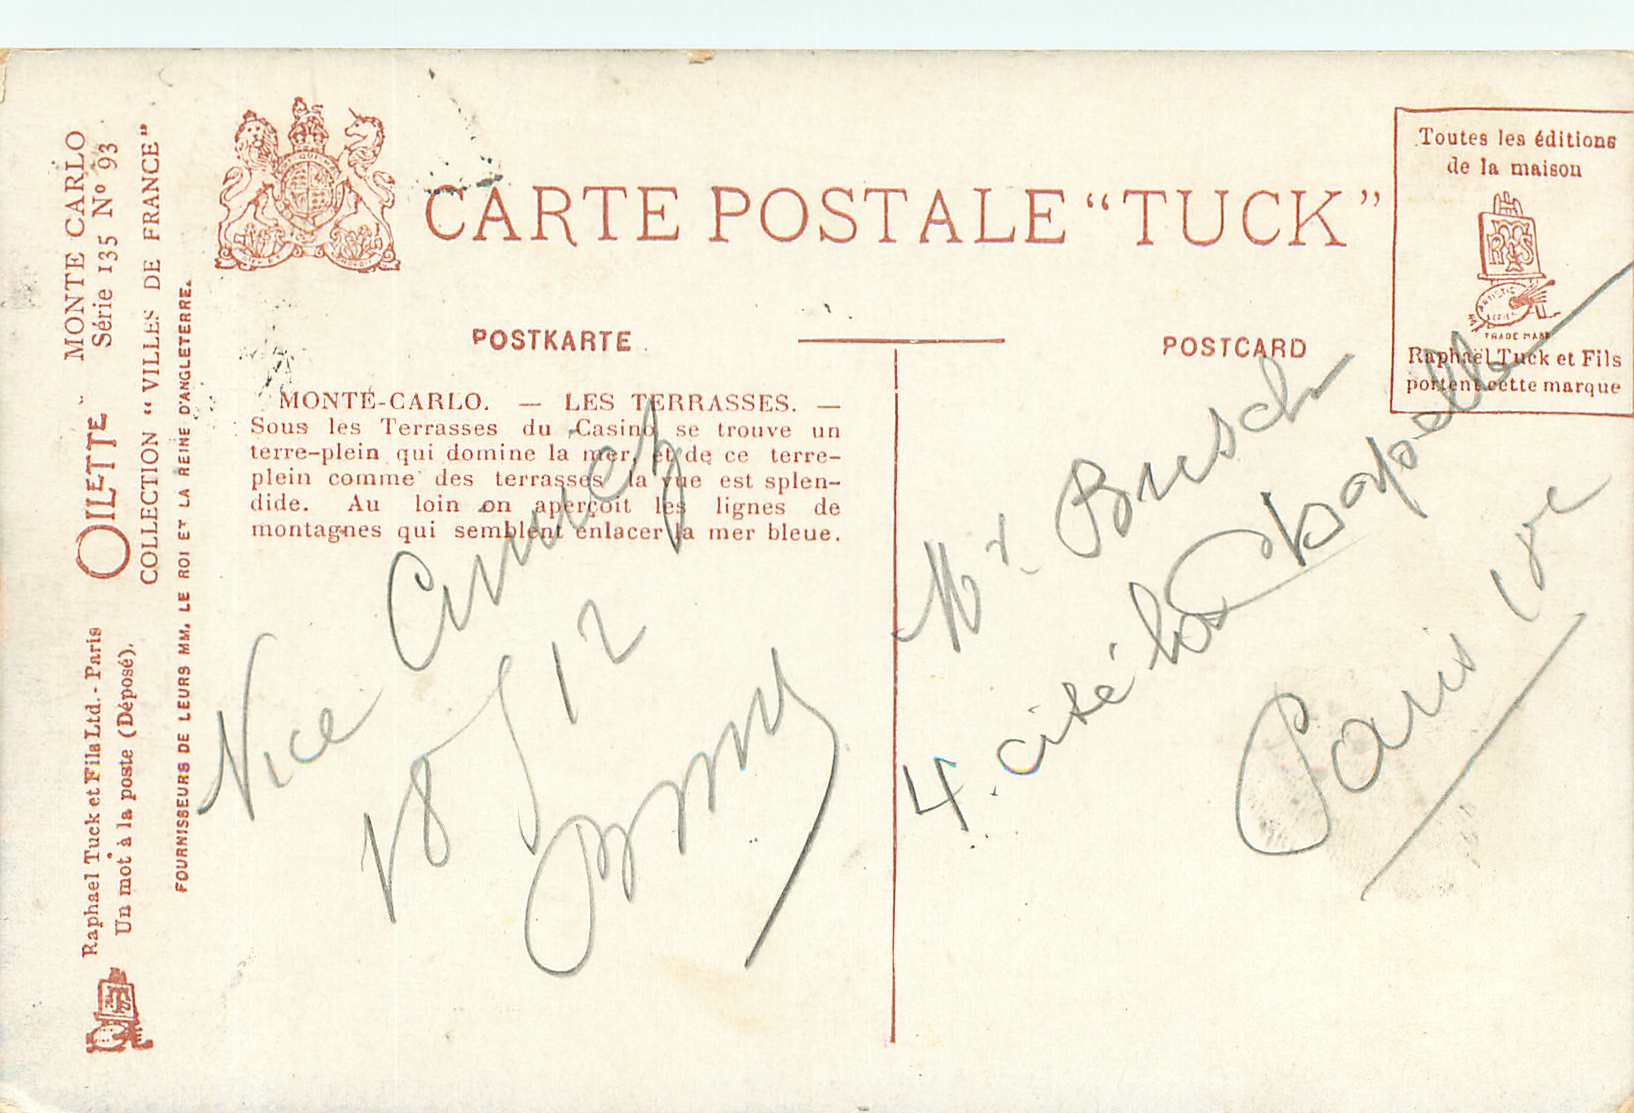 CARTE POSTALE “TUCK”
POSTKARTE
POSTCARD
Toutes les éditions
de la maison
ARTISTIC
SERIES
TRADE MARK
Raphaël Tuck et Fils
portent cette marque
MONTE CARLO
Série 135 Nº 93
OILETTE
COLLECTION “VILLES DE FRANCE”
FOURNISSEURS DE LEURS MM. LE ROI ET LA REINE D'ANGLETERRE.
Raphael Tuck et Fils Ltd.- Paris
Un mot à la poste (Déposé).
MONTE-CARLO. — LES TERRASSES. —
Sous les Terrasses du Casino se trouve un
terre-plein qui domine la mer, et de ce terre-
plein comme des terrasses la vue est splen-
dide. Au loin on aperçoit les lignes de
montagnes qui semblent enlacer la mer bleue.
Nice
18 12
Mr Busch
4. cité de la Chapelle
Paris